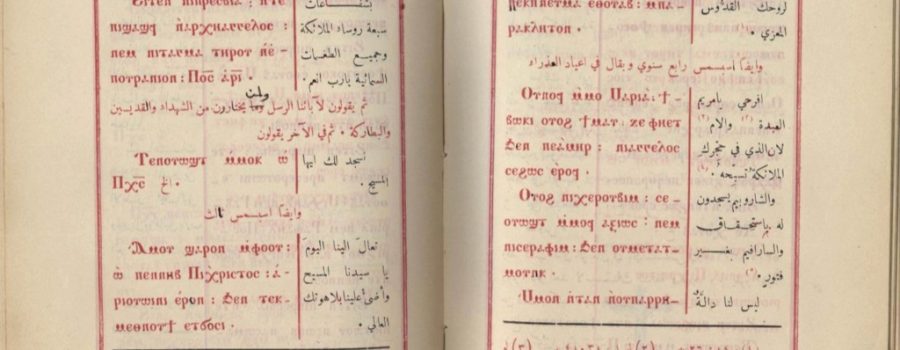 Ϩⲓⲧⲉⲛ ⲛⲓⲡⲣⲉⲥⲃⲓⲁ: ⲛ̀ⲧⲉ
ⲡⲓϣⲁϣϥ ⲛ̀ⲁⲣⲭⲏⲁⲅⲅⲉⲗⲟⲥ:
ⲛⲉⲙ ⲛⲓⲧⲁⲅⲙⲁ ⲧⲏⲣⲟⲩ ⲛ̀ⲉ̀-
ⲡⲟⲩⲣⲁⲛⲓⲟⲛ: Ⲡϭ̅ⲥ̅ ⲁ̀ⲣⲓ
بشفاعات
سبعة روساء الملائكة
وجميع الطغمات
السمائية يارب انعم.
ثم يقولون لآبائنا الرسل ولمن يختارون من الشهداء والقديسين
والبطاركة . ثم في الآخر يقولون
Ⲧⲉⲛⲟⲩⲱϣⲧ ⲙ̀ⲙⲟⲕ ⲱ̀
Ⲡⲭ̅ⲥ̅ . الخ
نسجد لك ايها
المسيح .
وايضًا اسبسمس ثالث
Ⲁ̀ⲙⲟⲩ ϣⲁⲣⲟⲛ ⲙ̀ⲫⲟⲟⲩ:
ⲱ̀ ⲡⲉⲛⲛⲏⲃ Ⲡⲓⲭⲣⲓⲥⲧⲟⲥ: ⲁ̀-
ⲣⲓⲟⲩⲱⲓⲛⲓ ⲉ̀ⲣⲟⲛ: ϧⲉⲛ ⲧⲉⲕ-
ⲙⲉⲑⲛⲟⲩϯ ⲉⲧϭⲟⲥⲓ .
تعالَ الينا اليومَ
يا سيدنا المسيح
وأضئ علينا بلاهوتك
العالي .
ⲡⲉⲕⲡⲛⲉⲩⲙⲁ ⲉⲑⲟⲩⲁⲃ: ⲙ̀ⲡⲁ-
ⲣⲁⲕⲗⲏⲧⲟⲛ .
لروحك القدّوس
المعزي .
وايضًا اسبسمس رابع سنوي ويقال في اعياد العذراء
Ⲟⲩⲛⲟϥ ⲙ̀ⲙⲟ Ⲙⲁⲣⲓⲁ: ϯ-
ⲃⲱⲕⲓ ⲟⲩⲟϩ ϯⲙⲁⲩ: ϫⲉ ⲫⲏⲉⲧ
ϧⲉⲛ ⲡⲉⲁ̀ⲙⲏⲣ: ⲛⲓⲁⲅⲅⲉⲗⲟⲥ
ⲥⲉϩⲱⲥ ⲉ̀ⲣⲟϥ:
افرحي يامريم
العبدة والام
لان الذي في حجرك
الملائكة تسبّحهُ.
Ⲟⲩⲟϩ ⲛⲓⲭⲉⲣⲟⲩⲃⲓⲙ: ⲥⲉ-
ⲟⲩⲱϣⲧ ⲙ̀ⲙⲟϥ ⲁⲝⲓⲱⲥ: ⲛⲉⲙ
ⲛⲓⲥⲉⲣⲁⲫⲓⲙ: ϧⲉⲛ ⲟⲩⲙⲉⲧⲁⲧ-
ⲙⲟⲩⲛⲕ.
والشاروبيم يسجدون
له باستحقاق
والسارافيم بغير
فتور .
Ⲙ̀ⲙⲟⲛ ⲛ̀ⲧⲁⲛ ⲛ̀ⲟⲩⲡⲁⲣⲣⲏ-
ليس لنا دالّةٌ